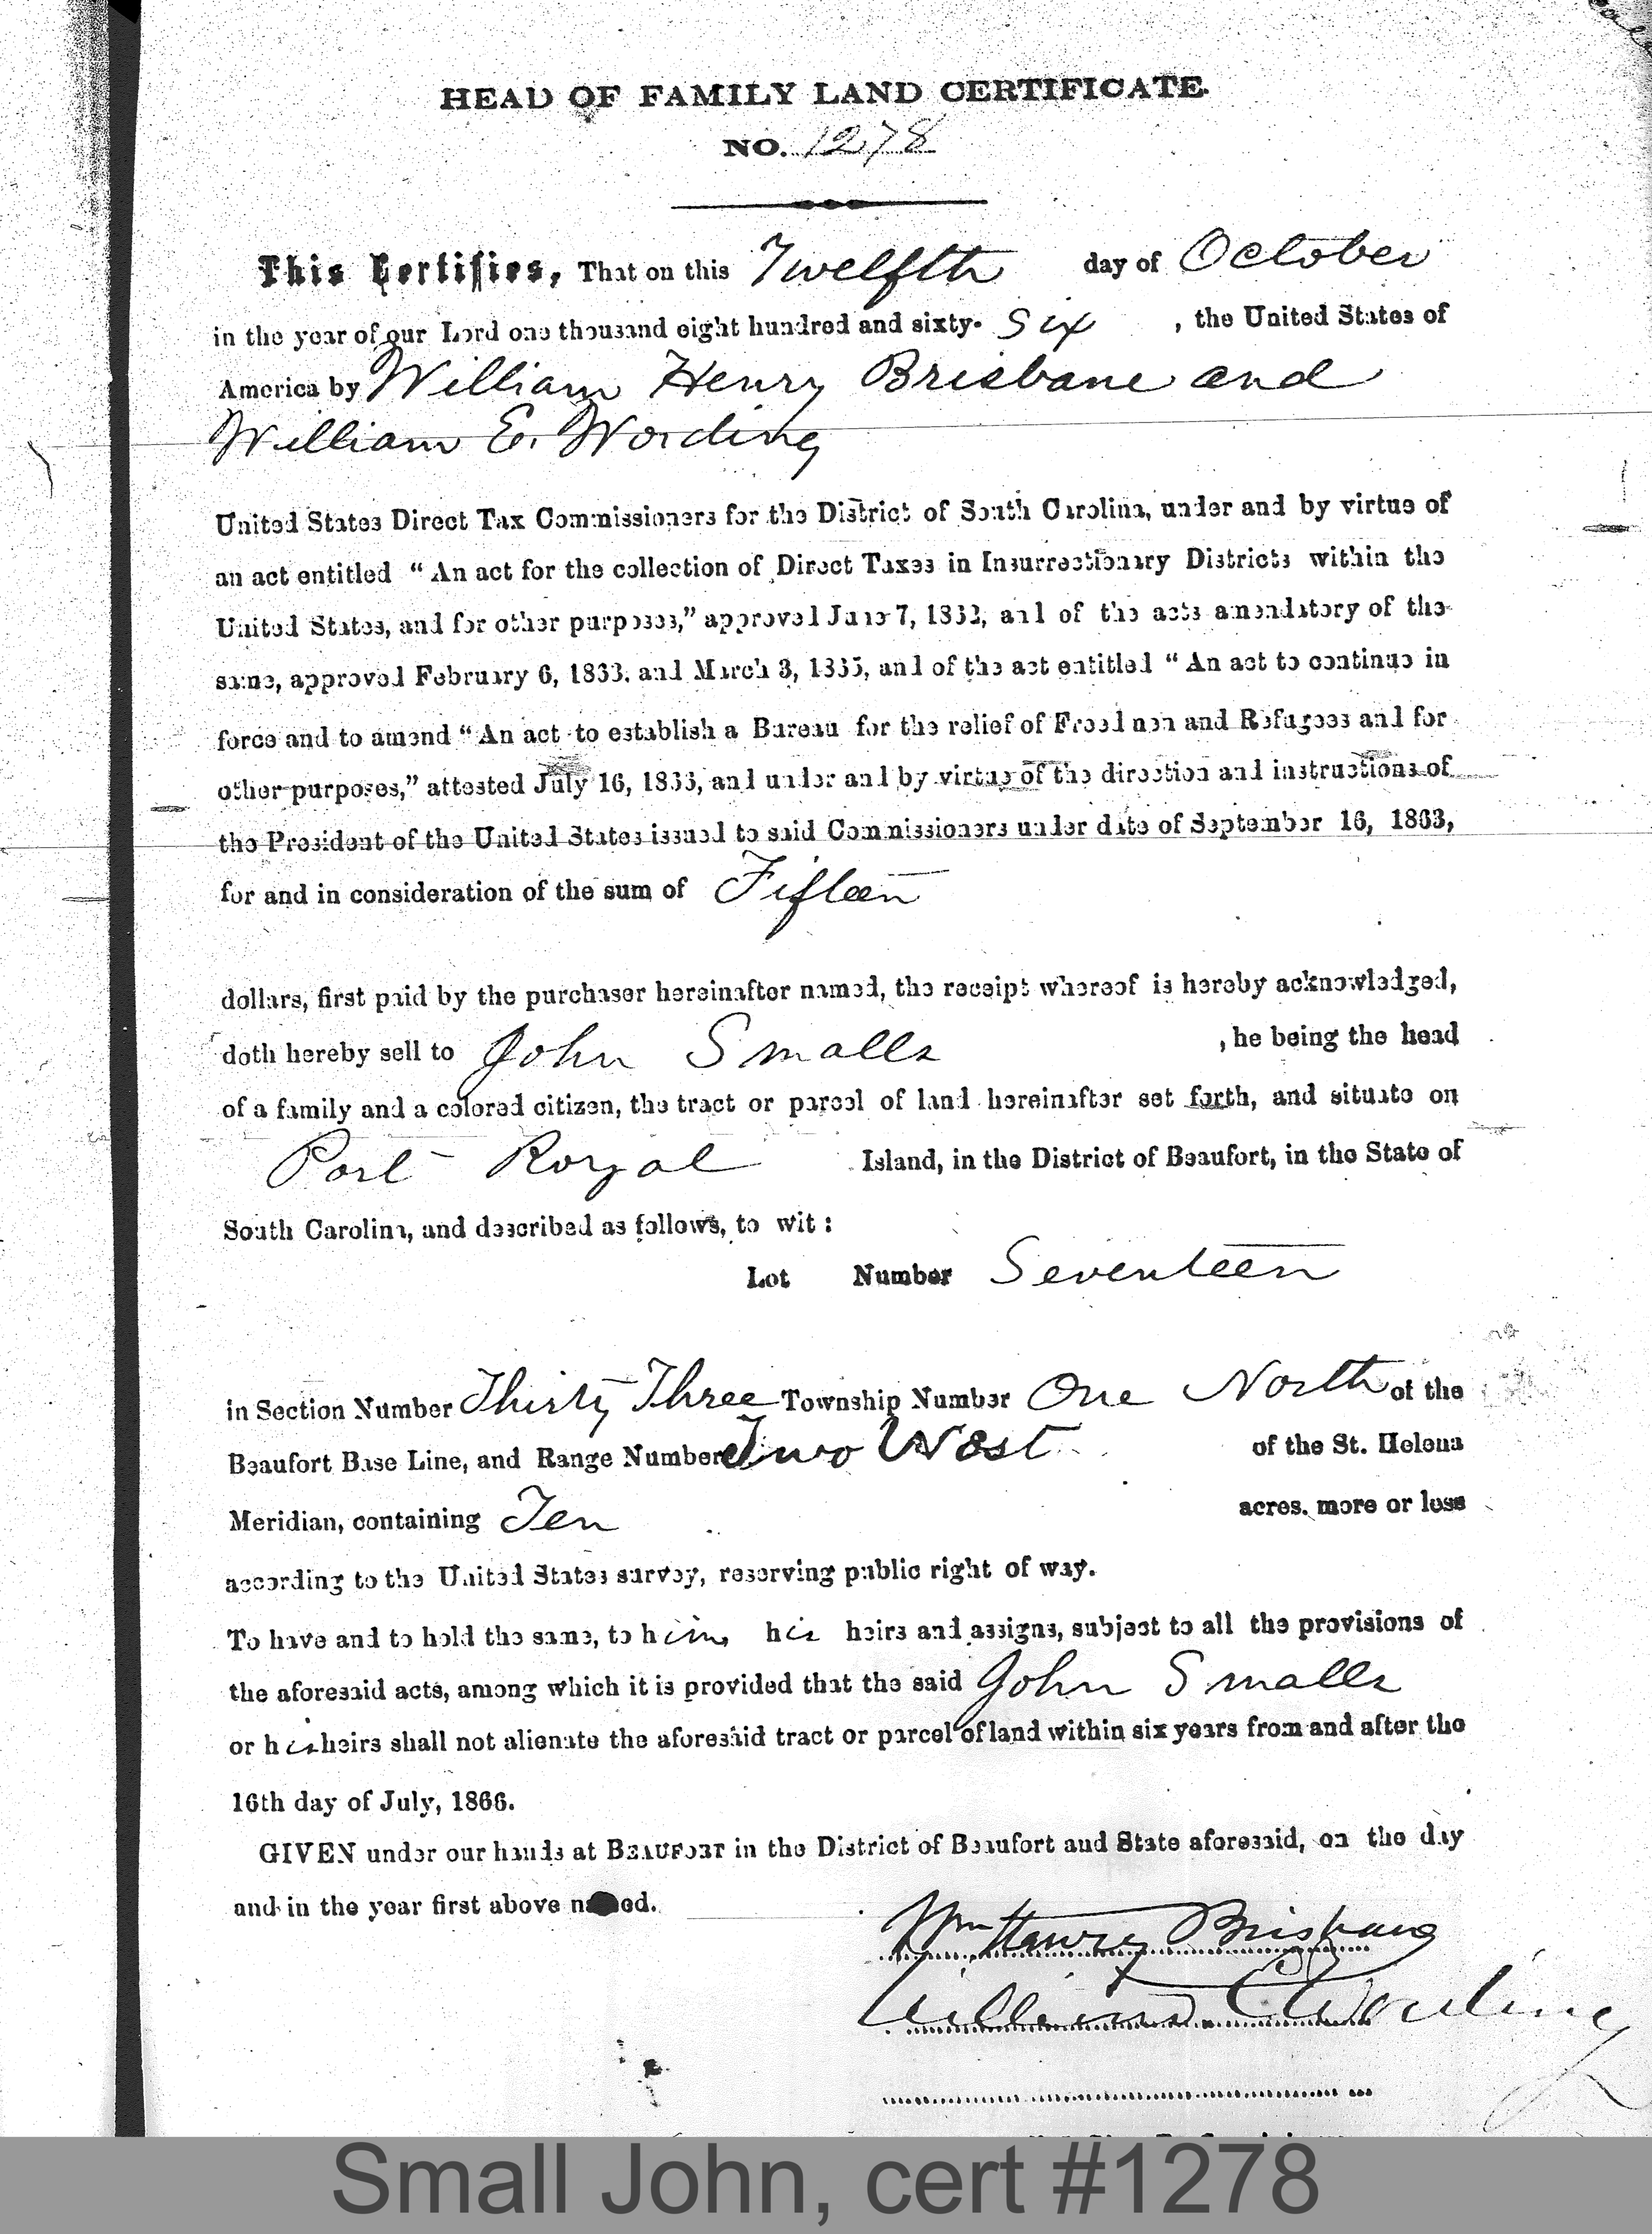 HEAD OF FAMILY LAND CERTIFICATE.
NO. 1278
This Certifies, That on this Twelfth day of October
in the year of our Lord one thousand eight hundred and sixty- Six , the United States of
America by William Henry Brisbane and
William E. Wording
United States Direct Tax Commissioners for the District of South Carolina, under and by virtue of
an act entitled “An act for the collection of Direct Taxes in Insurrectionary Districts within the
United States, and for other purposes,” approved June 7, 1862, and of the acts amendatory of the
same, approved February 6, 1863, and March 3, 1865, and of the act entitled “An act to continue in
force and to amend “An act to establish a Bureau for the relief of Freedmen and Refugees and for
other purposes,” attested July 16, 1866, and under and by virtue of the direction and instructions of
the President of the United States issued to said Commissioners under date of September 16, 1863,
for and in consideration of the sum of Fifteen
dollars, first paid by the purchaser hereinafter named, the receipt whereof is hereby acknowledged,
doth hereby sell to John Smalls , he being the head
of a family and a colored citizen, the tract or parcel of land hereinafter set forth, and situate on
Port Royal Island, in the District of Beaufort, in the State of
South Carolina, and described as follows, to wit:
Lot Number Seventeen
in Section Number Thirty Three Township Number One North of the
Beaufort Base Line, and Range Number Two West of the St. Helena
Meridian, containing Ten acres. more or less
according to the United States survey, reserving public right of way.
To have and to hold the same, to him, his heirs and assigns, subject to all the provisions of
the aforesaid acts, among which it is provided that the said John Smalls
or his heirs shall not alienate the aforesaid tract or parcel of land within six years from and after the
16th day of July, 1866.
GIVEN under our hands at BEAUFORT in the District of Beaufort and State aforesaid, on the day
and in the year first above named.
Wm Henry Brisbane
William E Wording
Small John, cert #1278